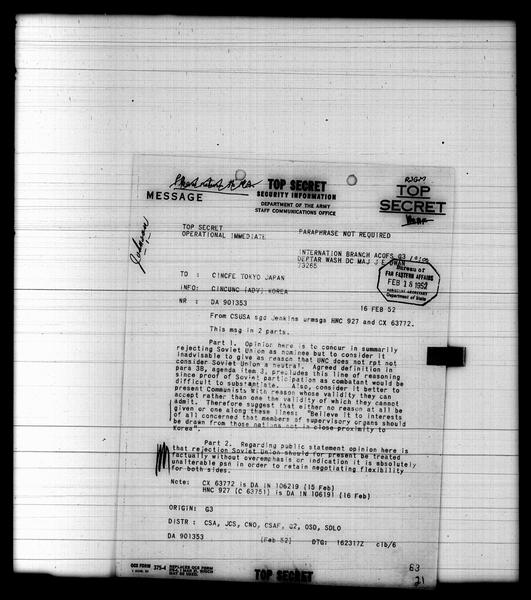 TOP SECRET
SECURITY INFORMATION
DEPARTMENT OF THE ARMY
STAFF COMMUNICATIONS OFFICE
MESSAGE
TOP
SECRET
TOP SECRET
OPERATIONAL IMMEDIATE
PARAPHRASE NOT REQUIRED
INTERNATION BRANCH ACOFS G3
DEPTAR WASH DC MAJ J E OWAN
73265
Bureau of
FAR EASTERN AFFAIRS
FEB 18 1952
Department of State
TO : CINCFE TOKYO JAPAN
INFO: CINCUNC (ADV) KOREA
NR : DA 901353
16 FEB 52
From CSUSA sgd Jenkins urmsgs HNC 927 and CX 63772.
This msg in 2 parts.
Part 1. Opinion here is to concur in summarily
rejecting Soviet Union as nominee but to consider it
inadvisable to give as reason that UNC does not rpt not
consider Soviet Union a neutral. Agreed definition in
para 3B, agenda item 3, precludes this line of reasoning
since proof of Soviet participation as combatant would be
difficult to substantiate. Also, consider it better to
present Communists with reason whose validity they can
accept rather than one the validity of which they cannot
admit. Therefore suggest that either no reason at all be
given or one along these lines: "Believe it to interests
of all concerned that members of supervisory organs should
be drawn from those nations not in close proximity to
Korea".
Part 2. Regarding public statement opinion here is
that rejection Soviet Union should for present be treated
factually without overemphasis or indication it is absolutely
unalterable psn in order to retain negotiating flexibility
for both sides.
Note: CX 63772 is DA IN 106219 (15 Feb)
HNC 927 (C 63751) is DA IN 106191 (16 Feb)
ORIGIN: G3
DISTR : CSA, JCS, CNO, CSAF, G2, OSD, SDLO
DA 901353
(Feb 52)
DTG: 162317Z
clb/6
OCS FORM 375-4
REPLACES OCS FORM
TOP SECRET
63
21